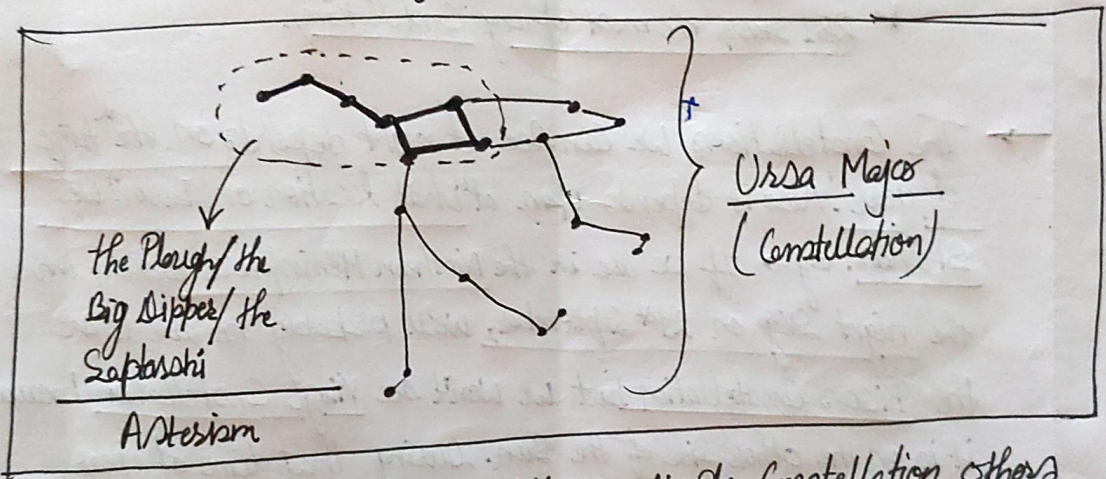 the Plough/the
Big Dipper/the
Saptarshi
Asterism
Ursa Major
(Constellation)
Constellation others